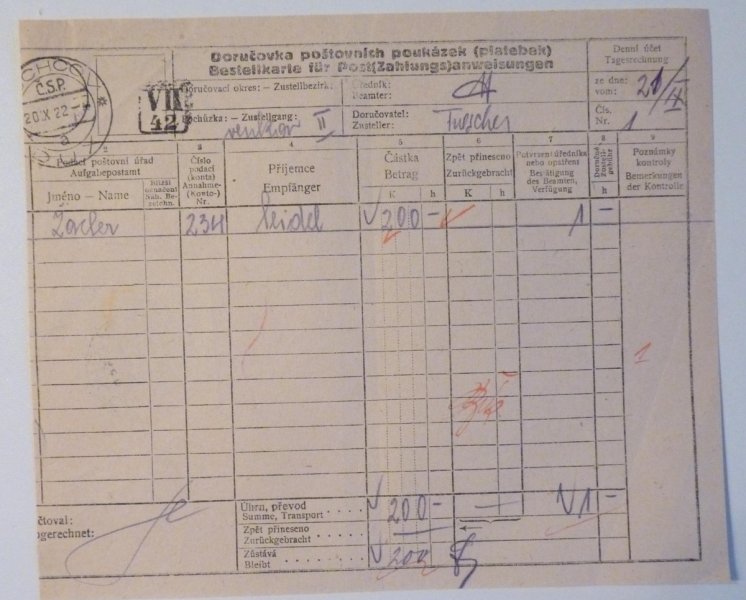 Doručovka poštovních poukázek (platebek)
Bestellkarte für Post(Zahlungs)anweisungen
Denní účet
Tagesrechnung
ČSP.
20.X 22
VII
42
Doručovací okres: - Zustellbezirk:
Úředník:
Beamter:
ze dne:
vom:
Pochůzka: - Zustellgang: venkov II
Doručovatel:
Zusteller:
Čís.
Nr. 1
2 3 4 5 6 7 8 9
poštovní úřad
Aufgabepostamt
Jméno — Name
Bližší označení
Näh. Bezeichn.
Číslo podací (konta)
Annahme- (Konto-) Nr.
Příjemce
Empfänger
Částka
Betrag
K h
Zpět přineseno
Zurückgebracht
K h
Potvrzení úředníka nebo opatření
Bestätigung des Beamten, Verfügung
Doručné
Zustellgebühr
h
Poznámky kontroly
Bemerkungen der Kontrolle
234 Seidel 200 — 1 —
1
Úhrn, převod
Summe, Transport 200 — 1 —
čtoval:
gerechnet:
Zpět přineseno
Zurückgebracht
Zůstává
Bleibt 200